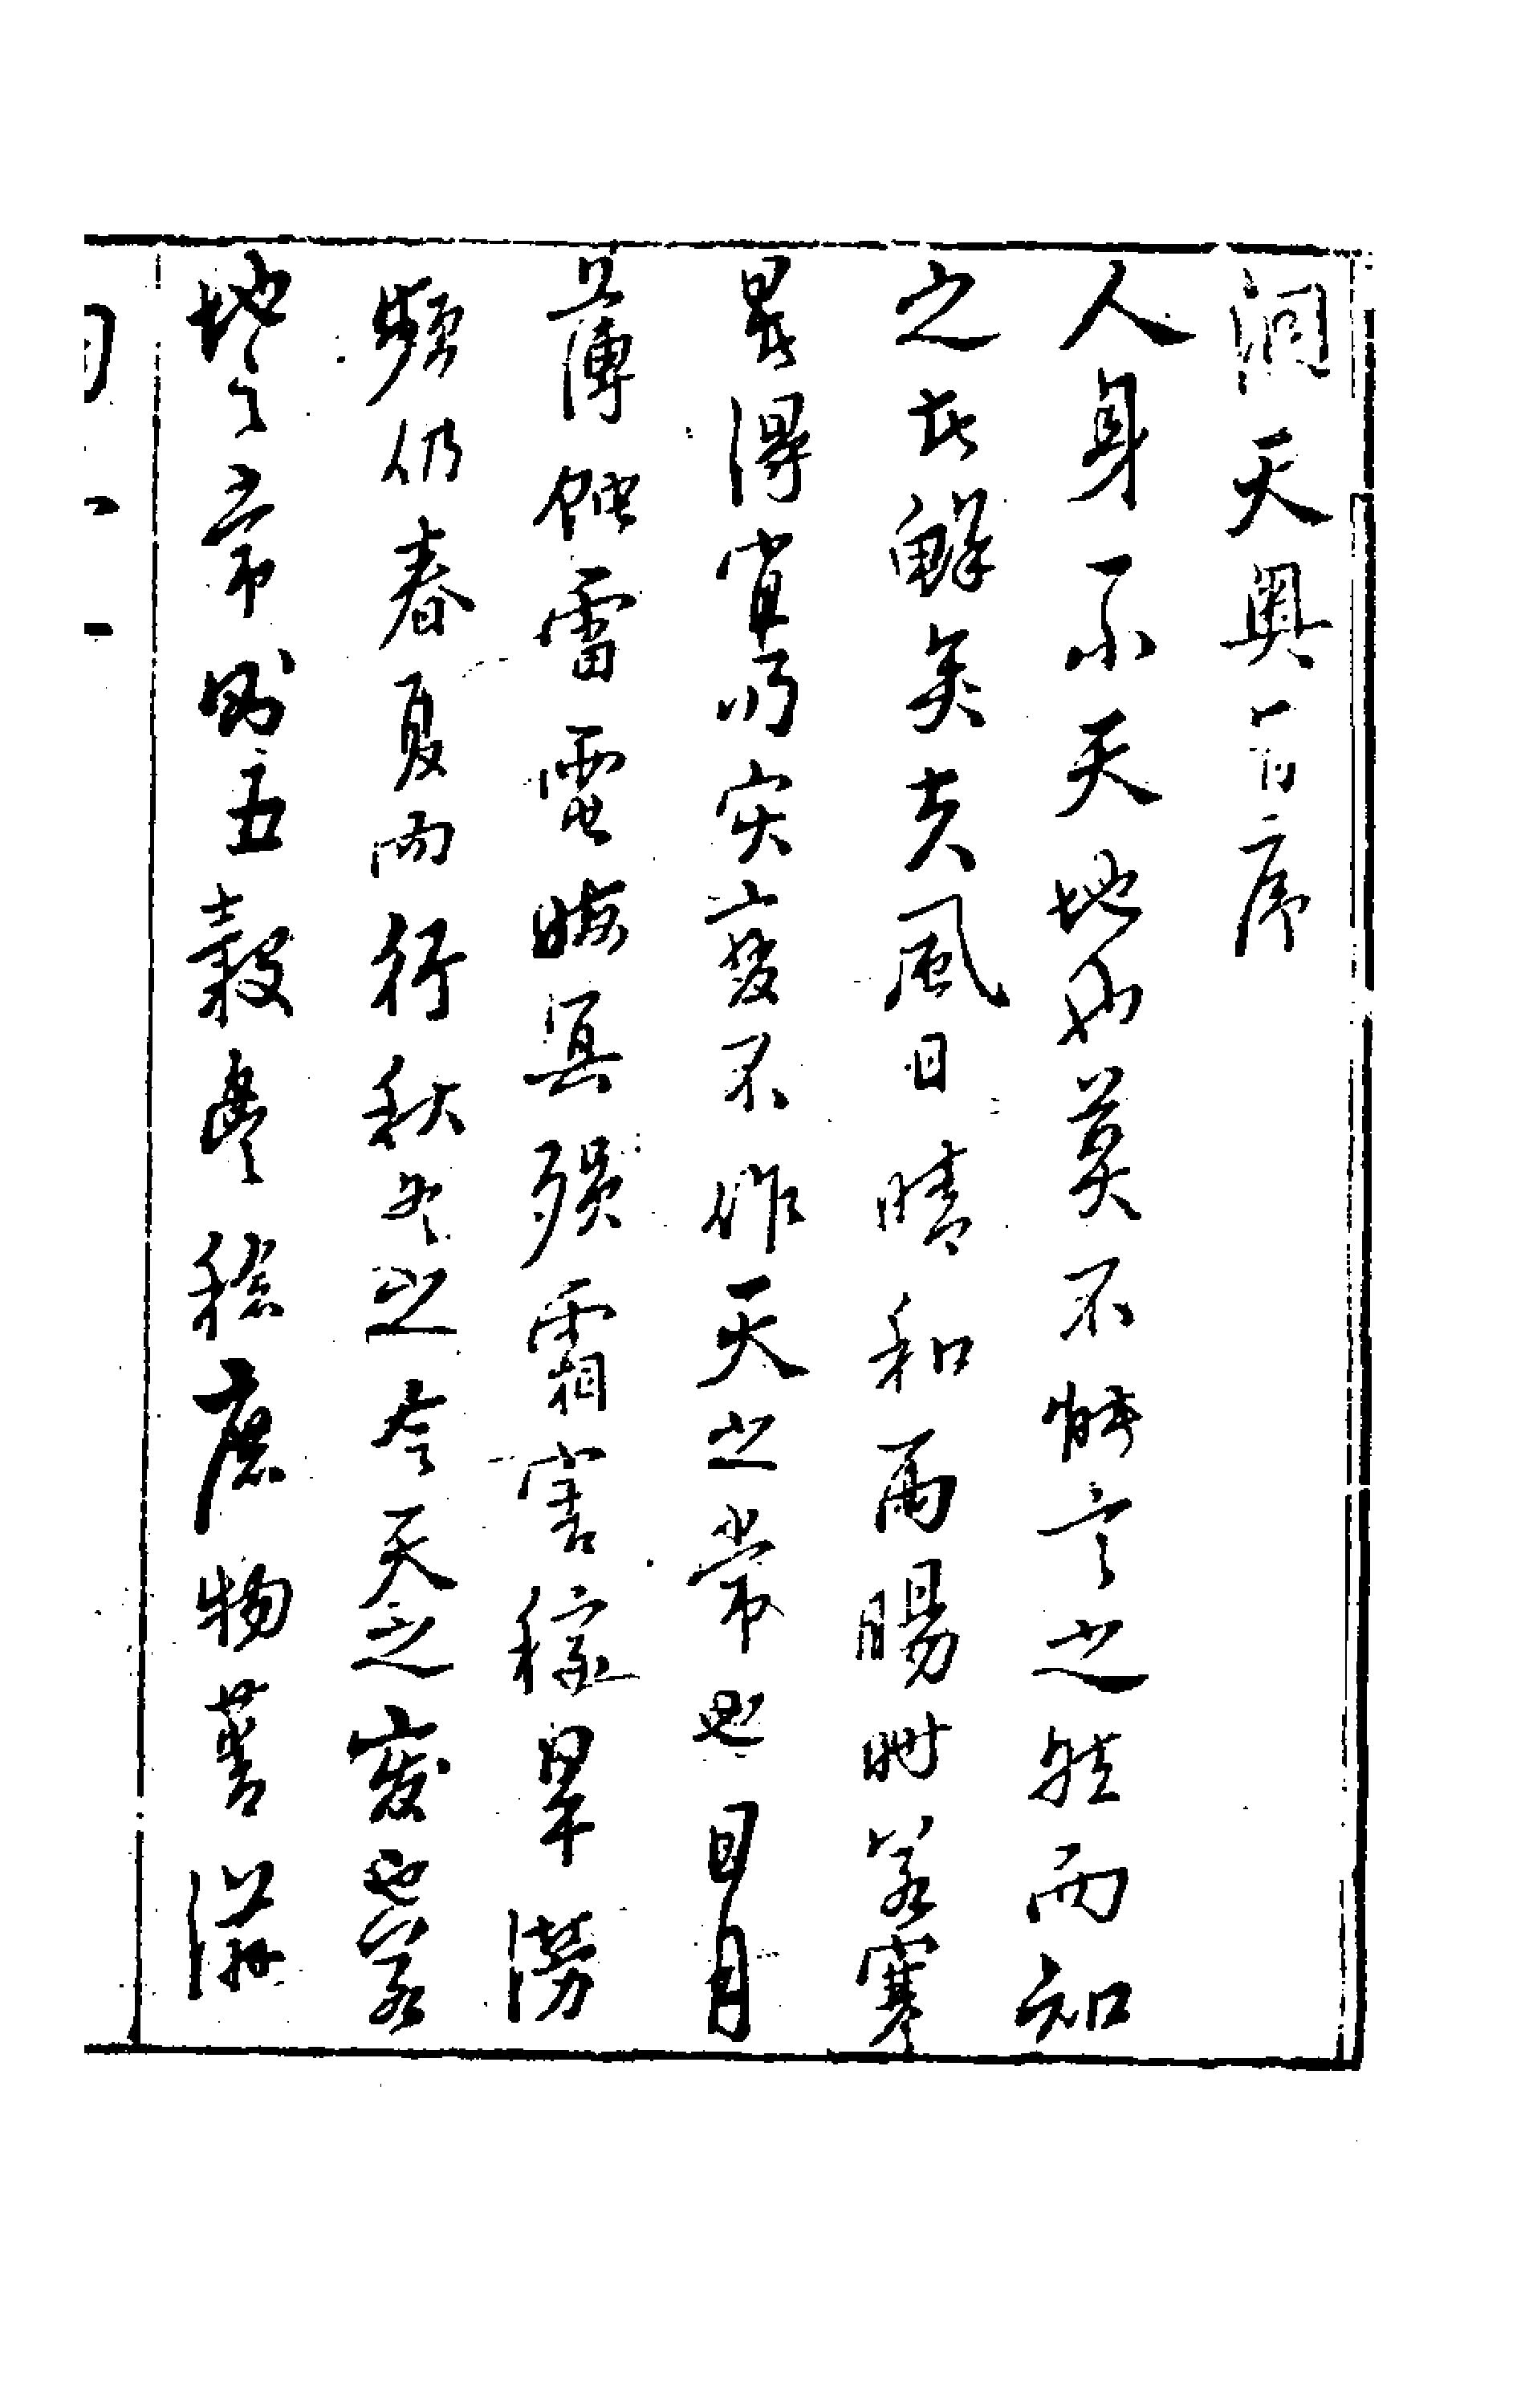 洞天奧旨序
人身一小天地也莫不能言之然而知
之者鮮矣夫風日晴和雨暘時若寒
暑得宜災變不作天之常也日月
薄蝕雷電晦冥殞霜害稼旱澇
頻仍春夏而行秋冬之令天之變也若
地之常則五穀豐稔庶物蕃